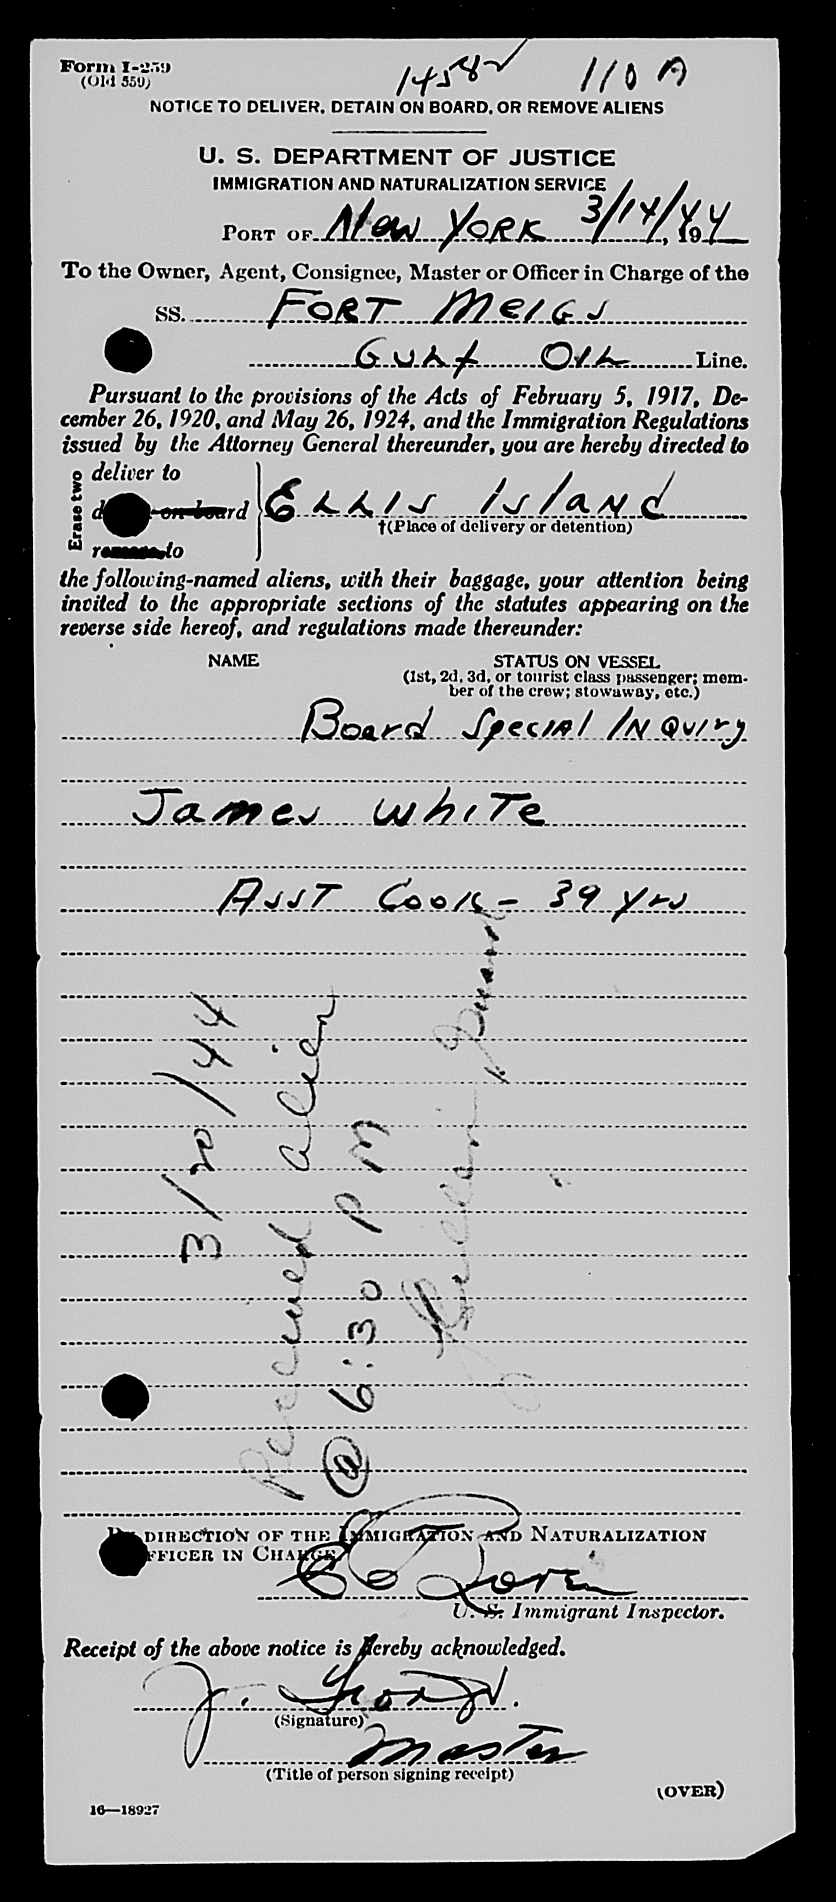 Form I-259
(Old 559)
1458 110 A
NOTICE TO DELIVER, DETAIN ON BOARD, OR REMOVE ALIENS
U. S. DEPARTMENT OF JUSTICE
IMMIGRATION AND NATURALIZATION SERVICE
PORT OF New York 3/14/44, 194
To the Owner, Agent, Consignee, Master or Officer in Charge of the
SS. FORT Meigs
Gulf Oil Line.
Pursuant to the provisions of the Acts of February 5, 1917, De-
cember 26, 1920, and May 26, 1924, and the Immigration Regulations
issued by the Attorney General thereunder, you are hereby directed to
Erase two
deliver to
on board
Ellis Island
†(Place of delivery or detention)
to
the following-named aliens, with their baggage, your attention being
invited to the appropriate sections of the statutes appearing on the
reverse side hereof, and regulations made thereunder:
NAME STATUS ON VESSEL
(1st, 2d, 3d, or tourist class passenger; mem-
ber of the crew; stowaway, etc.)
Board Special Inquiry
James White
Asst Cook - 39 yrs
3/20/44
Received alien
@ 6:30 PM
DIRECTION OF THE IMMIGRATION AND NATURALIZATION
OFFICER IN CHARGE
U. S. Immigrant Inspector.
Receipt of the above notice is hereby acknowledged.
J.
(Signature)
Master
(Title of person signing receipt)
(OVER)
16—18927